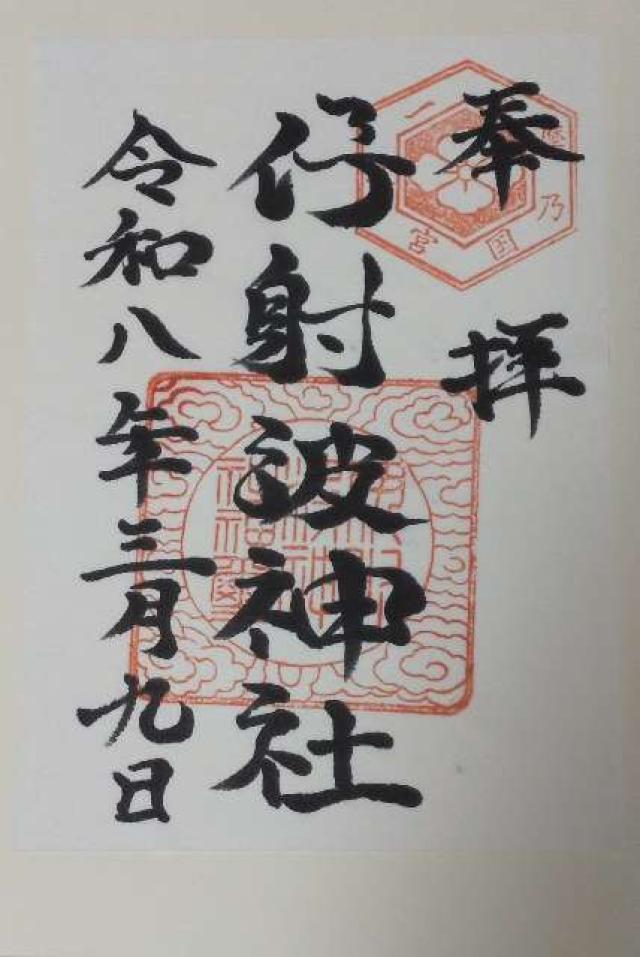 奉拝
乃国
一宮
伊射波神社
令和八年三月九日